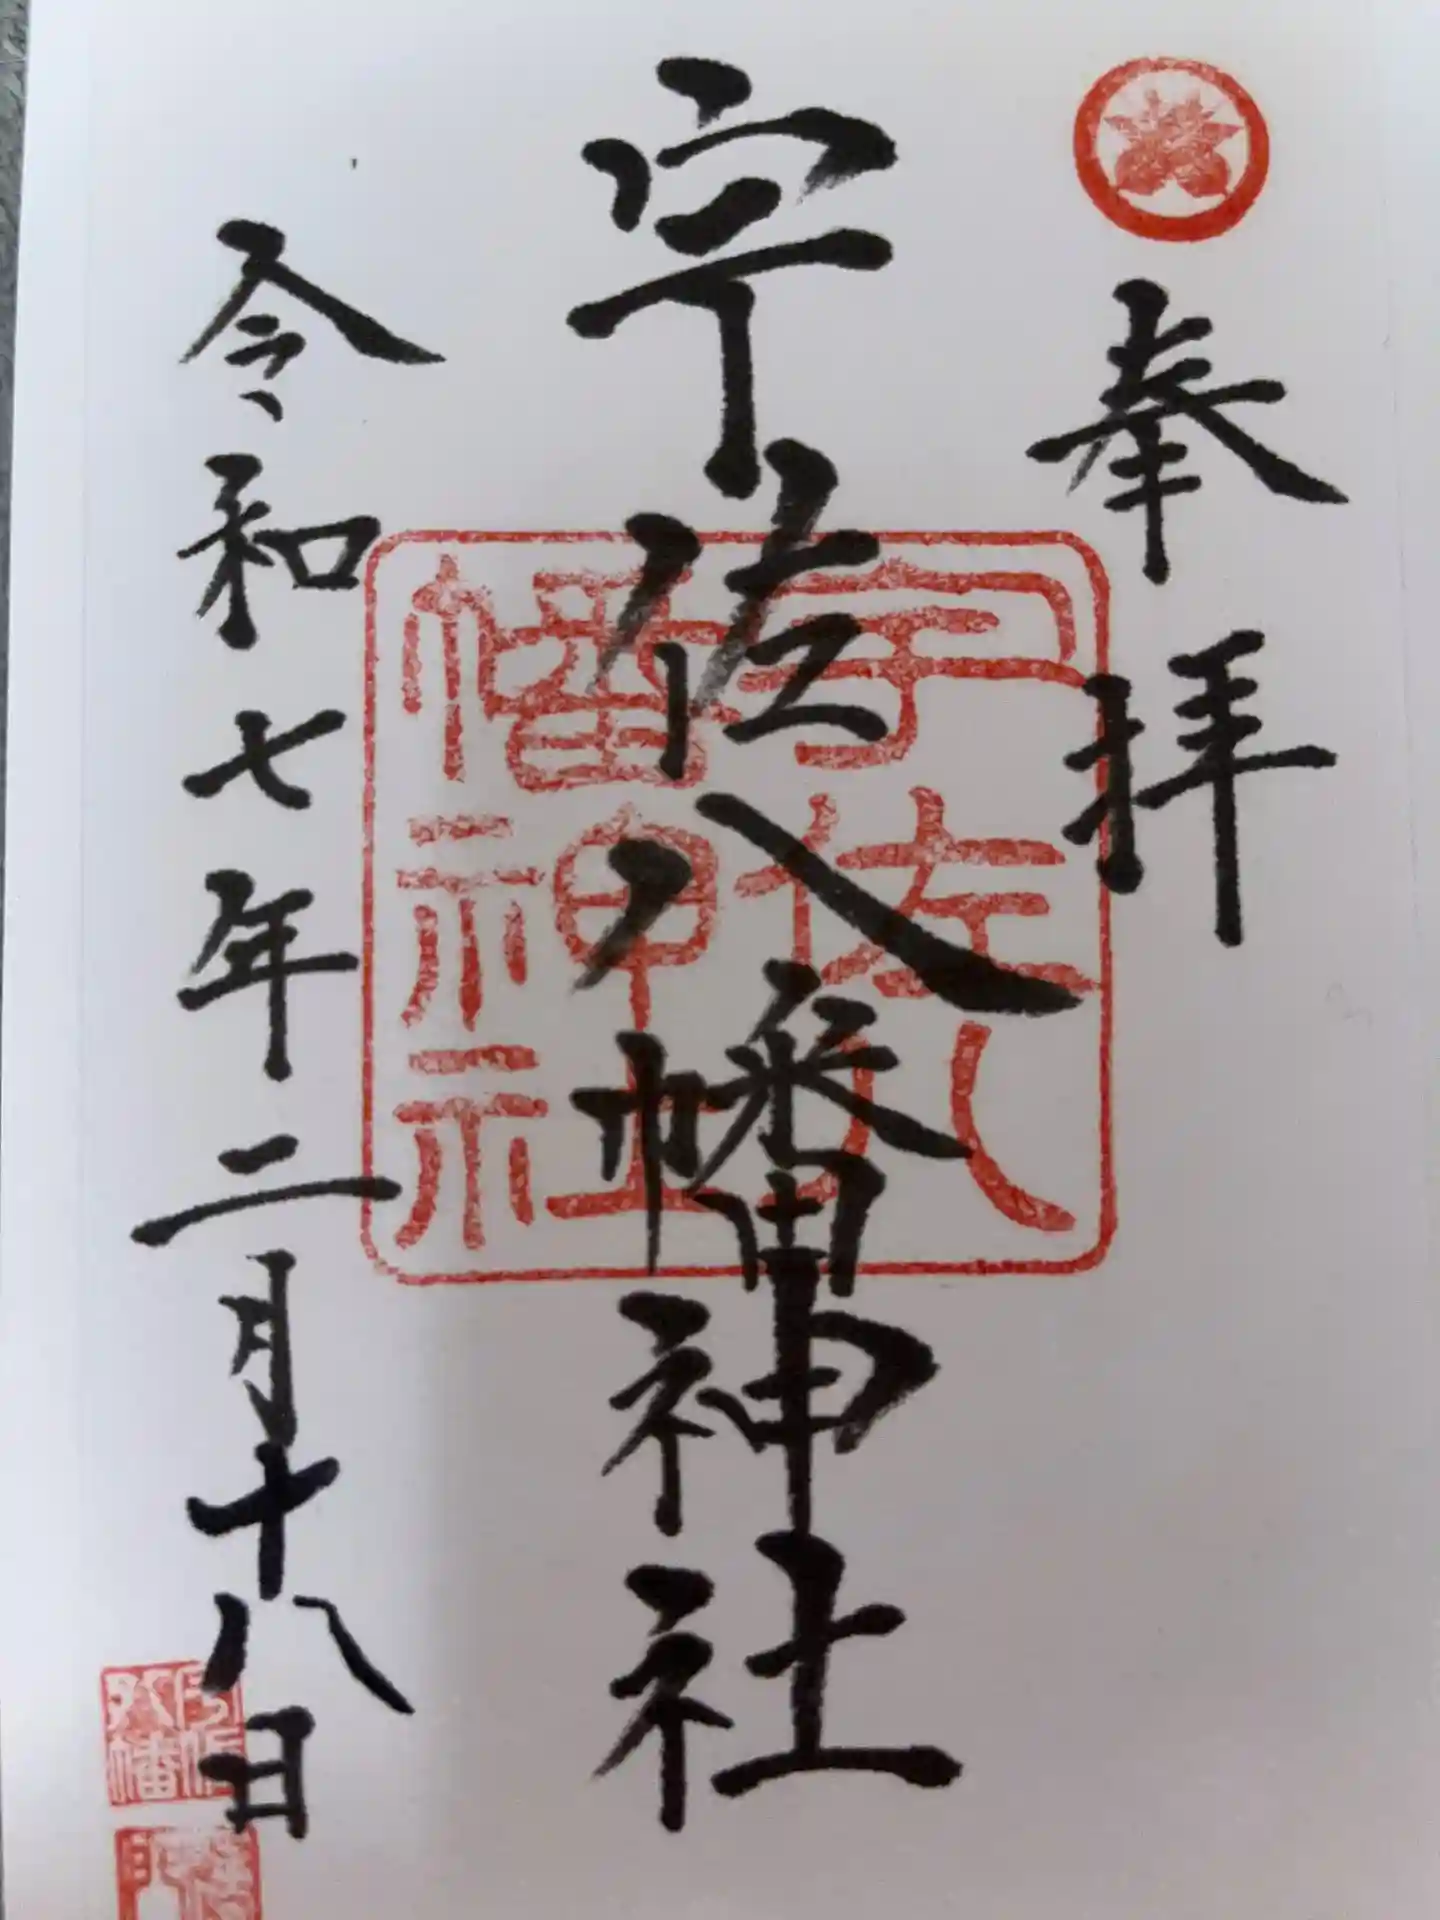 奉拝
宇佐八幡神社
宇佐八
幡神社
令和七年二月十八日
宇佐
八幡